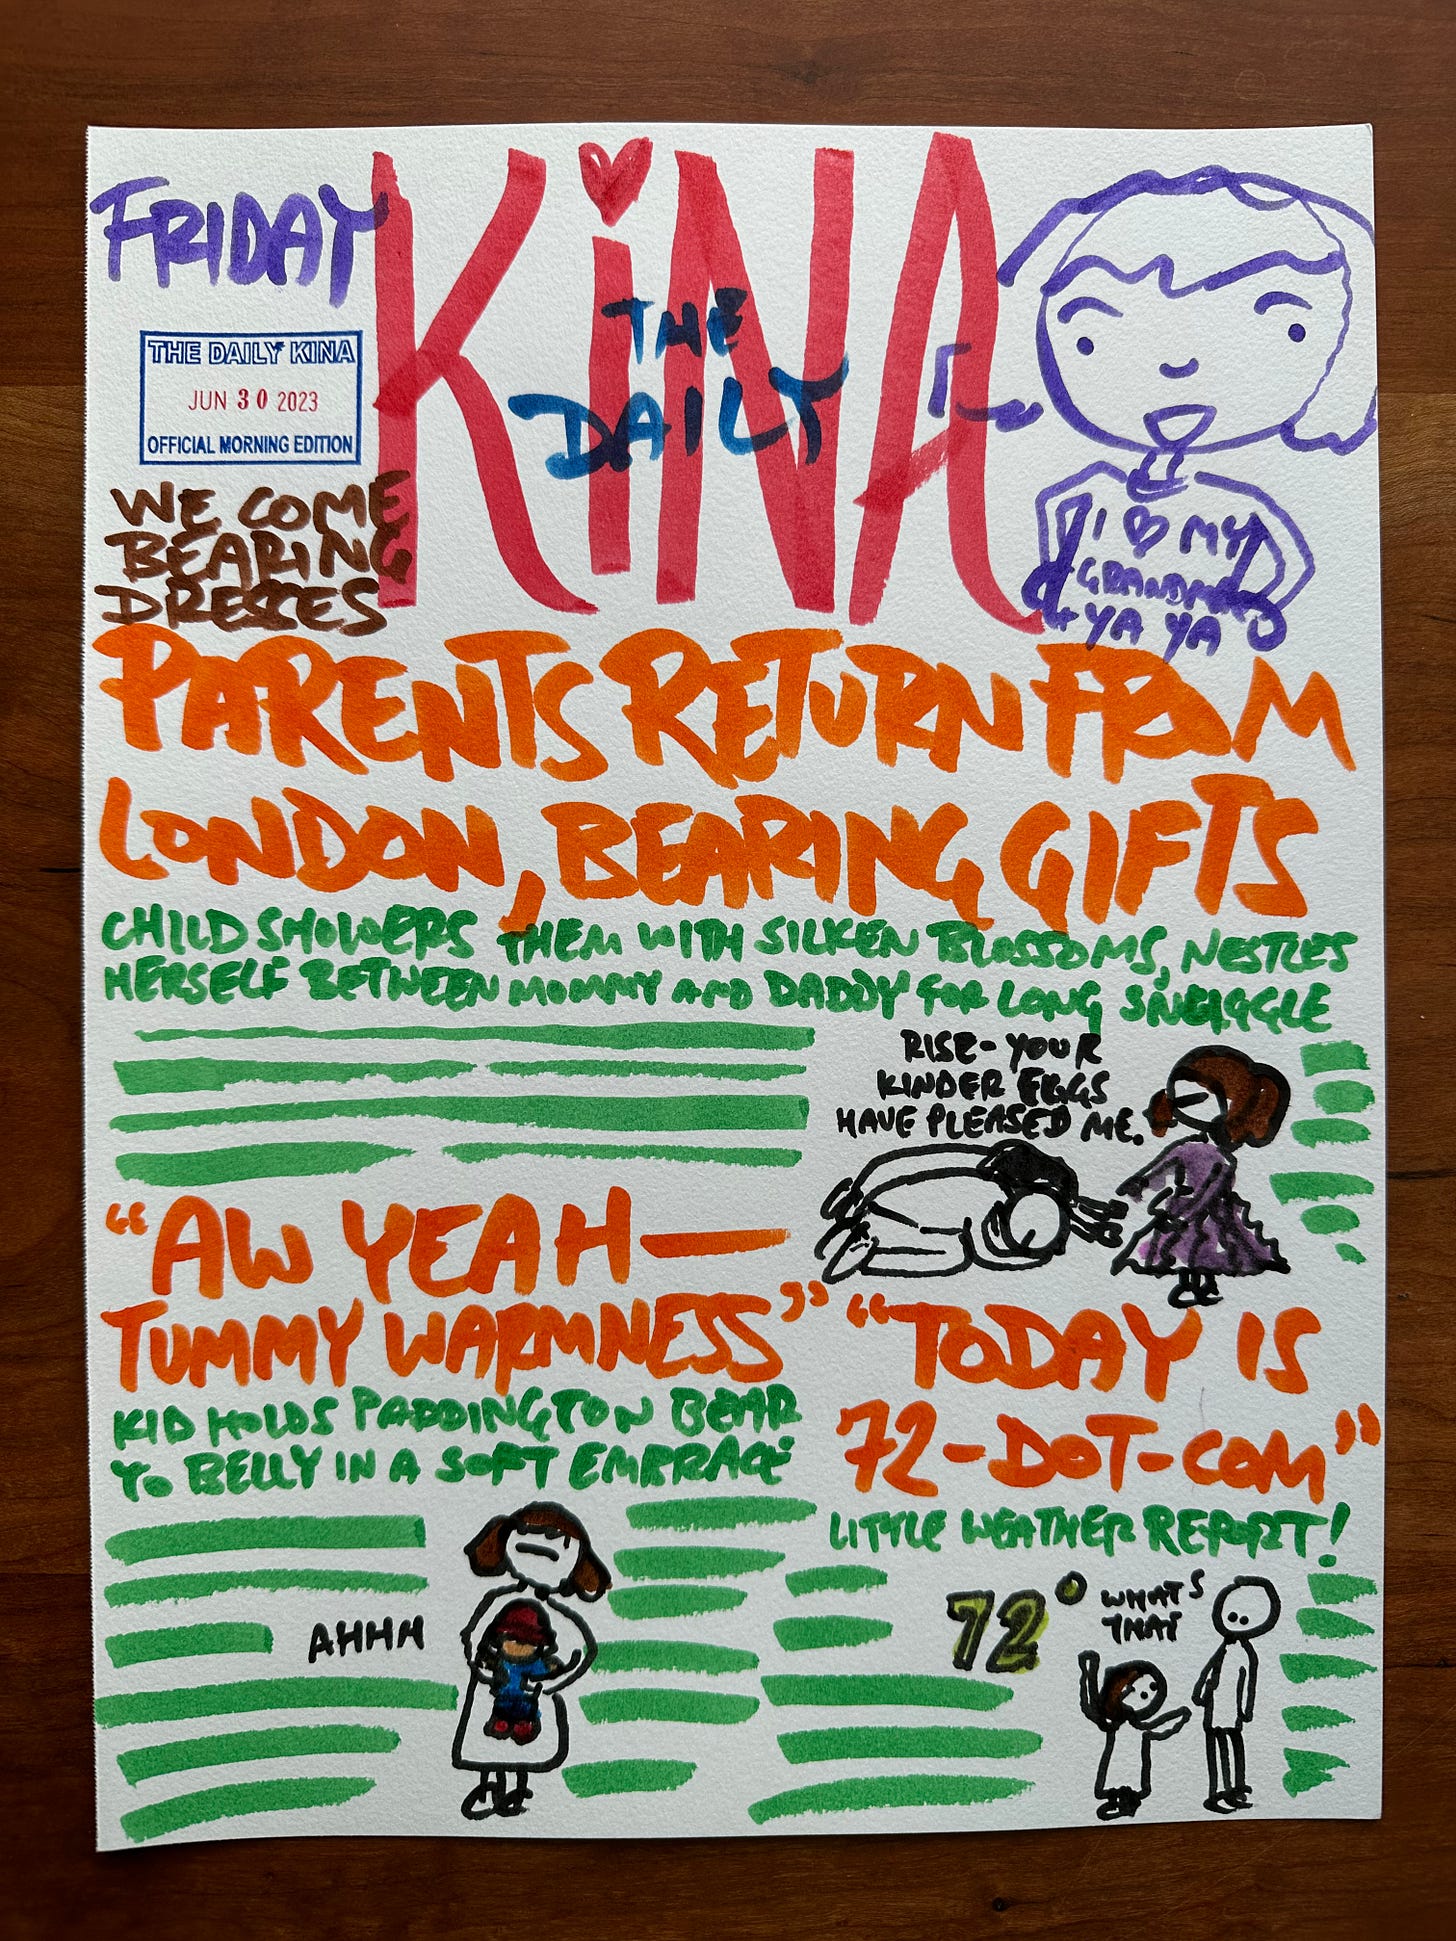 FRIDAY
THE DAILY KINA
JUN 30 2023
OFFICIAL MORNING EDITION
WE COME
BEARING
DRESSES
THE
DAILY
KiNA
I ♡ MY
GRANDMA
+ YA YA
PARENTS RETURN FROM
LONDON, BEARING GIFTS
CHILD SHOWERS THEM WITH SILKEN BLOSSOMS, NESTLES
HERSELF BETWEEN MOMMY AND DADDY FOR LONG SNUGGLE
RISE-YOUR
KINDER EGGS
HAVE PLEASED ME.
"AW YEAH—
TUMMY WARMNESS"
KID HOLDS PADDINGTON BEAR
TO BELLY IN A SOFT EMBRACE
AHHH
"TODAY IS
72-DOT-COM"
LITTLE WEATHER REPORT!
72°
WHAT'S
THAT